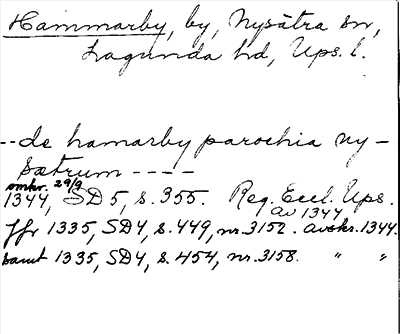 Hammarby, by, Nysätra sn,
Lagunda hd, Ups. l.
--de hamarby parochia ny-
sætrum ----
omkr. 29/9
1344, SD5, s. 355. Reg. Eccl. Ups.
av 1344
Jfr 1335, SD4, s. 449, nr. 3152. avskr. 1344.
samt 1335, SD4, s. 454, nr. 3158. " "